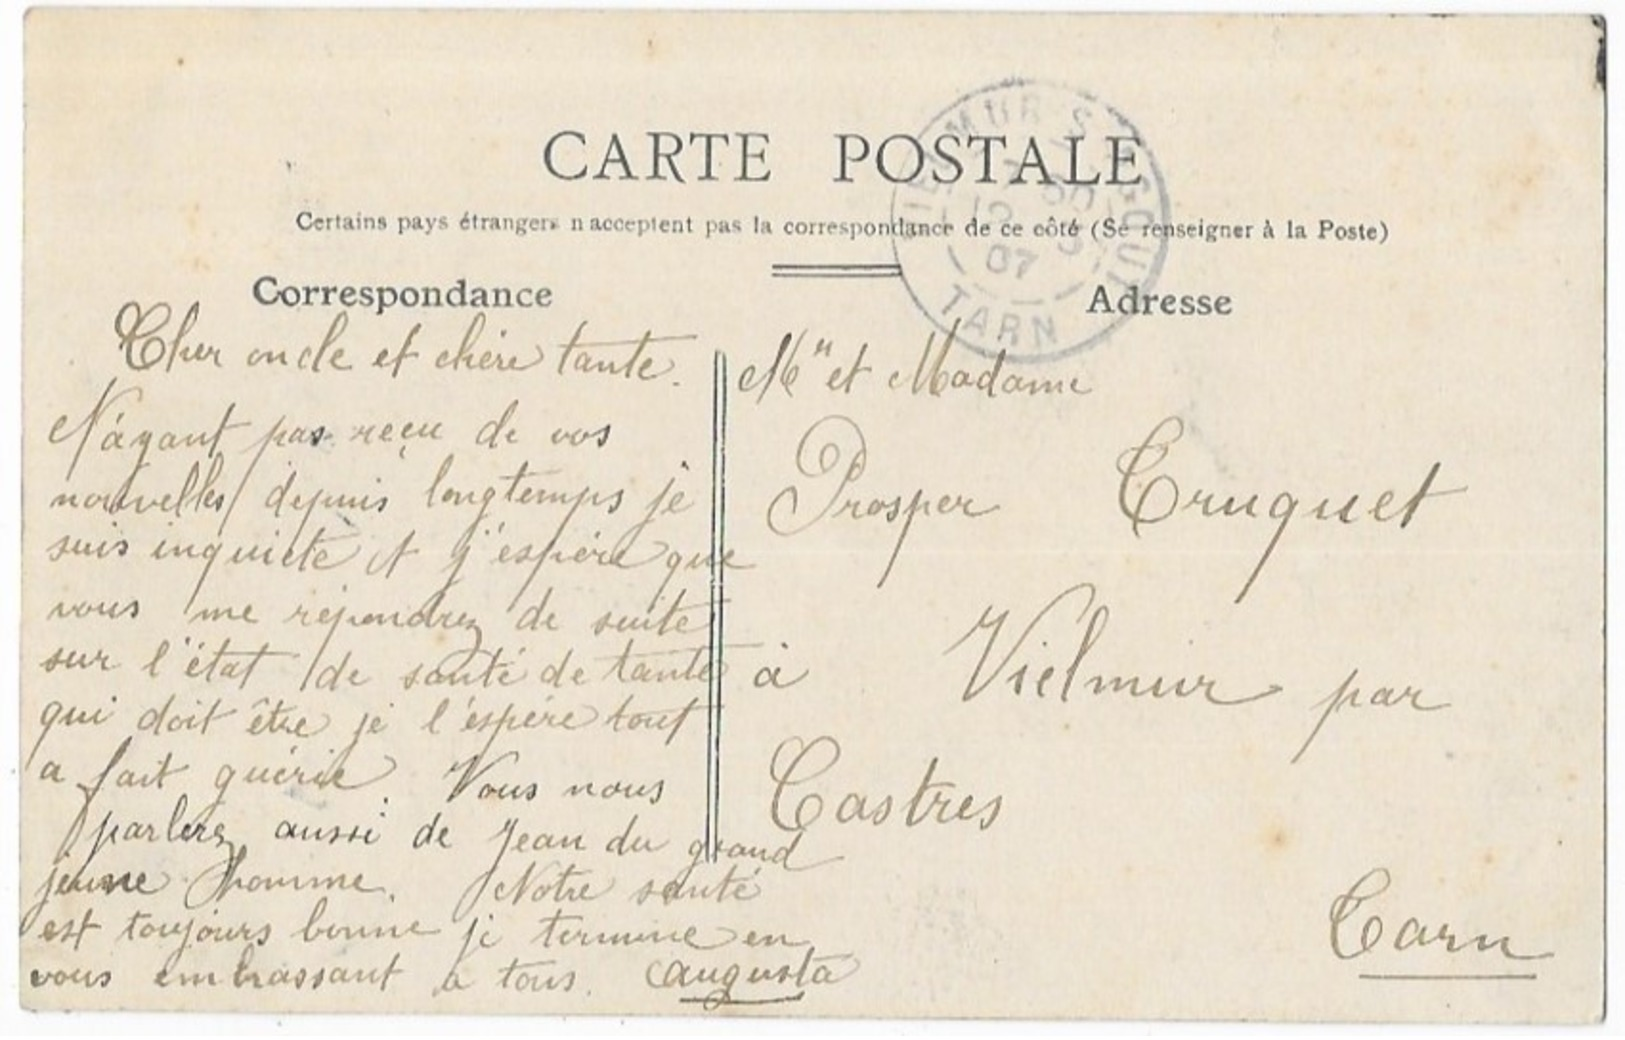 CARTE POSTALE
Certains pays étrangers n'acceptent pas la correspondance de ce côté (Se renseigner à la Poste)
Correspondance
Cher oncle et chère tante.
N'ayant pas reçu de vos
nouvelles depuis longtemps je
suis inquiete et j'espère que
vous me répondrez de suite
sur l'état de santé de tante
qui doit être je l'espère tout
a fait guérie. Vous nous
parlerez aussi de Jean du grand
jeune homme. Notre santé
est toujours bonne je termine en
vous embrassant a tous. Augusta
Adresse
Mr et Madame
Prosper Truquet
à Vielmur par
Castres
Tarn
07
TARN